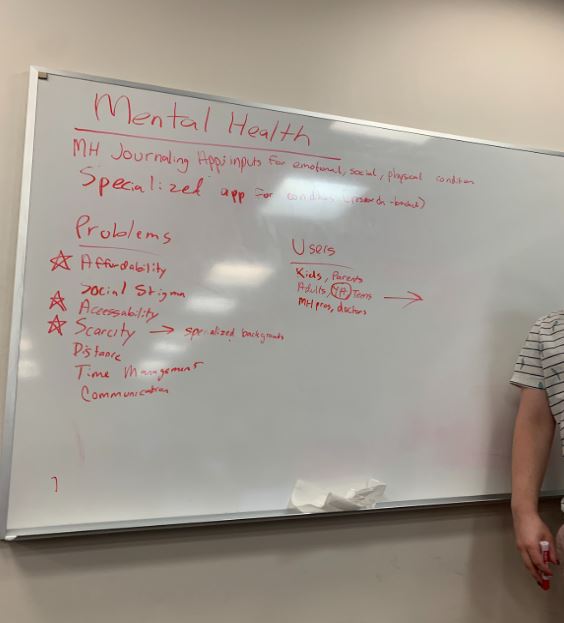 Mental Health
MH Journaling App: inputs for emotional, social, physical condition
Specialized app for conditions (research-backed)
Problems
Affordability
Social Stigma
Accessability
Scarcity → specialized backgrounds
Distance
Time Management
Communication
Users
Kids, Parents
Adults, YA, Teens →
MH pros, doctors